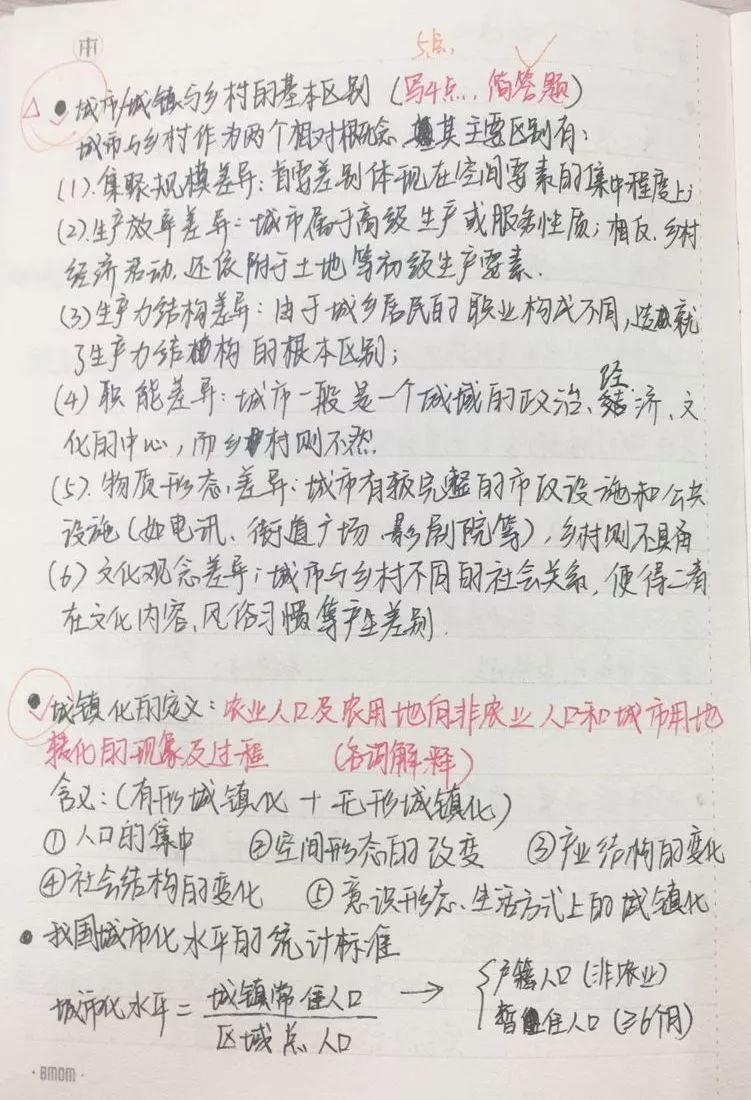 5点
城市/城镇与乡村的基本区别 (写4点，简答题)
城市与乡村作为两个相对概念，其主要区别有：
(1).集聚规模差异：首要差别体现在空间要素的集中程度上；
(2).生产效率差异：城市属于高级生产或服务性质；相反，乡村
经济活动，还依附于土地等初级生产要素.
(3)生产力结构差异：由于城乡居民的职业构成不同，造就
了生产力结构的根本区别；
(4)职能差异：城市一般是一个域域的政治、经济、文
化的中心，而乡村则不然.
(5).物质形态差异：城市有较完整的市政设施和公共
设施(如电讯、街道广场、影剧院等)，乡村则不具备
(6)文化观念差异；城市与乡村不同的社会关系，使得二者
在文化内容、风俗习惯等产生差别.
城镇化的定义：农业人口及农用地向非农业人口和城市用地
转化的现象及过程 (名词解释)
含义：(有形城镇化+无形城镇化)
①人口的集中 ②空间形态的改变 ③产业结构的变化
④社会结构的变化 ⑤意识形态、生活方式上的城镇化
我国城市化水平的统计标准
城市化水平 = 城镇常住人口 → 户籍人口(非农业)
区域总人口 暂住人口(≥6个月)
·BMOM·